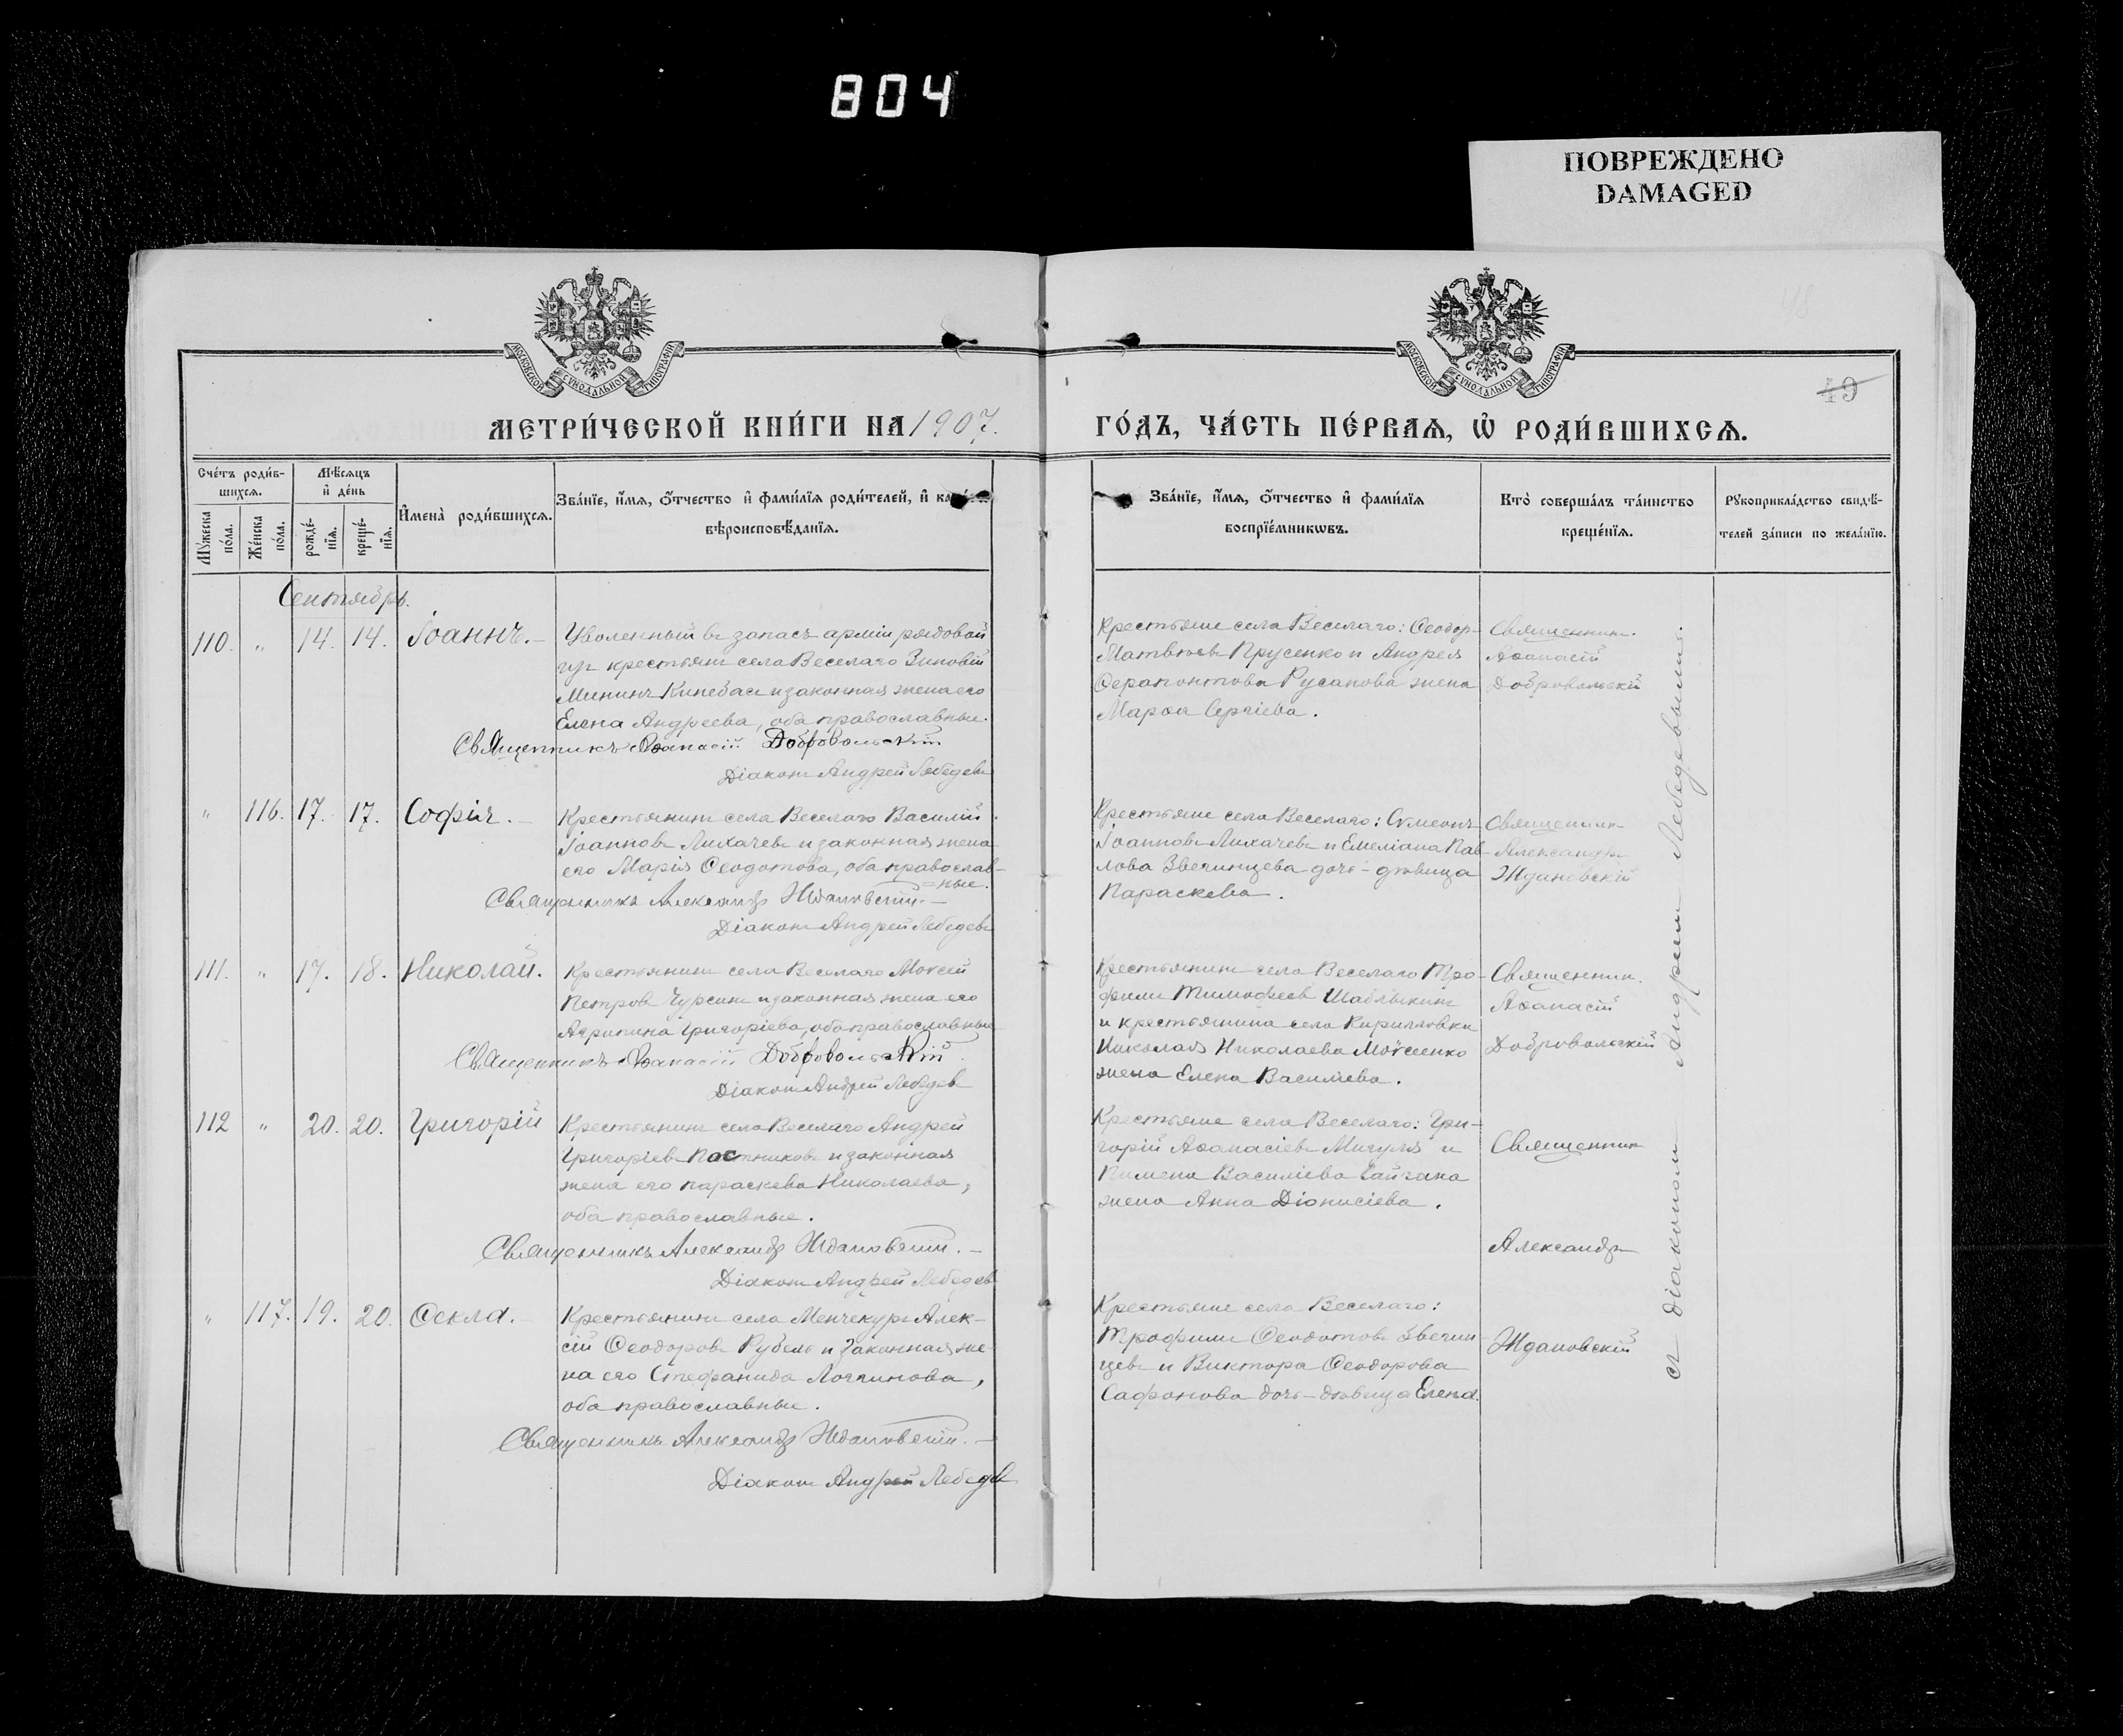 804
ПОВРЕЖДЕНО
DAMAGED
МОСКОВСКОЙ СѴНОДАЛЬНОЙ ТИПОГРАФІИ
МОСКОВСКОЙ СѴНОДАЛЬНОЙ ТИПОГРАФІИ
18
49
МЕТРИ́ЧЕСКОЙ КНИ́ГИ НА 1907.
ГО́ДЪ, ЧА́СТЬ ПЕ́РВАѦ, Ѡ҆ РОДИ́ВШИХСѦ.
Сче́тъ роди́в-
шихсѧ.
Мѣ́сѧцъ
и҆ де́нь
Мꙋ́жеска
по́ла.
Же́нска
по́ла.
рожде́-
нїѧ.
креще́-
нїѧ.
И҆мена̀ роди́вшихсѧ.
Зва́нїе, и҆́мѧ, ѻ҆́тчество и҆ фами́лїѧ роди́телей, и҆
вѣроисповѣ́данїѧ.
Зва́нїе, и҆́мѧ, ѻ҆́тчество и҆ фами́лїѧ
воспрїе́мникѡвъ.
Кто̀ соверша́лъ та́инство
креще́нїѧ.
Рꙋкоприкла́дство свидѣ́-
телей за́писи по жела́нїю.
Сентябрь.
110. " 14. 14. Іоаннъ.
Уволенный въ запасъ арміи рядовой
изъ крестьянъ села Веселаго Зиновій
Мининъ Кинебасъ и законная жена его
Елена Андреева, оба православные.
Священникъ Аѳанасій Добровольскій
Діаконъ Андрей Лебедевъ
Крестьяне села Веселаго: Ѳеодоръ
Матвѣевъ Прусенко и Андрея
Ѳерапонтова Русанова жена
Марѳа Сергіева.
Священникъ
Аѳанасій
Добровольскій
" 116. 17. 17. Софія.
Крестьянинъ села Веселаго Василій
Іоанновъ Лихачевъ и законная жена
его Марія Ѳеодотова, оба православ-
ные.
Священникъ Александръ Ждановскій.
Діаконъ Андрей Лебедевъ
Крестьяне села Веселаго: Сѵмеонъ
Іоанновъ Лихачевъ и Емеліана Пав-
лова Звегинцева дочь-дѣвица
Параскева.
Священникъ
Александръ
Ждановскій
111. " 17. 18. Николай.
Крестьянинъ села Веселаго Моѵсей
Петровъ Чурсинъ и законная жена его
Агрипина Григоріева, оба православные
Священникъ Аѳанасій Добровольскій
Діаконъ Андрей Лебедевъ
Крестьянинъ села Веселаго Тро-
фимъ Тимофеевъ Шаблыкинъ
и крестьянина села Кирилловки
Николая Николаева Моѵсеенко
жена Елена Василіева.
Священникъ
Аѳанасій
Добровольскій
112 " 20. 20. Григорій
Крестьянинъ села Веселаго Андрей
Григоріевъ Постниковъ и законная
жена его Параскева Николаева,
оба православные.
Священникъ Александръ Ждановскій.
Діаконъ Андрей Лебедевъ
Крестьяне села Веселаго: Гри-
горій Аѳанасіевъ Мигуля и
Пимена Василіева Гайгана
жена Анна Діонисіева.
Священникъ
Александръ
Ждановскій
" 117. 19. 20. Ѳекла.
Крестьянинъ села Менчекуръ Алек-
сій Ѳеодоровъ Рубель и законная же-
на его Стефанида Логгинова,
оба православные.
Священникъ Александръ Ждановскій.
Діаконъ Андрей Лебедевъ
Крестьяне села Веселаго:
Трофимъ Ѳеодотовъ Звегин-
цевъ и Виктора Ѳеодорова
Сафонова дочь-дѣвица Елена.
съ діакономъ Андреемъ Лебедевымъ.